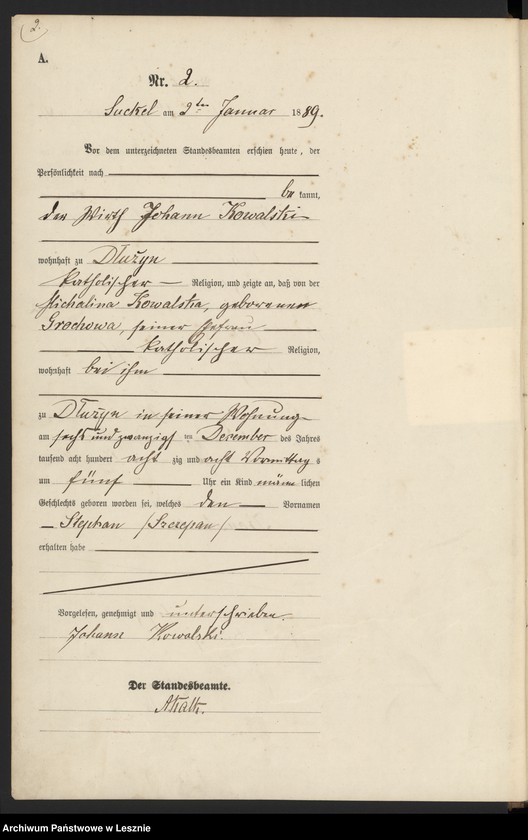 2.
A.
Nr. 2.
Suckel am 2ten Januar 1889.
Vor dem unterzeichneten Standesbeamten erschien heute, der
Persönlichkeit nach
be kannt,
der Wirth Johann Kowalski
wohnhaft zu Dłużyn
katholischer Religion, und zeigte an, daß von der
Michalina Kowalska, geborenen
Grachowa, seiner Ehefrau
katholischer Religion,
wohnhaft bei ihm
zu Dłużyn in seiner Wohnung
am sechs und zwanzigst en December des Jahres
tausend acht hundert acht zig und acht Vormittag s
um fünf Uhr ein Kind männ lichen
Geschlechts geboren worden sei, welches den Vornamen
Stephan /Szczepan/
erhalten habe
Vorgelesen, genehmigt und unterschrieben.
Johann Kowalski.
Der Standesbeamte.
Archiwum Państwowe w Lesznie